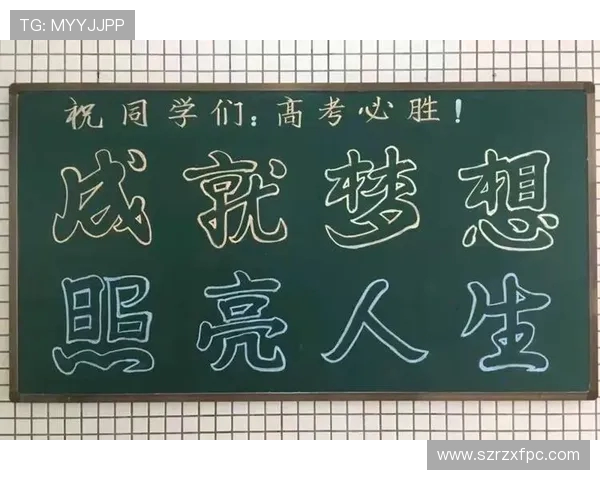 TG: MYYJJPP
祝同学们：高考必胜！
成就梦想
照亮人生
www.szrzxfpc.com